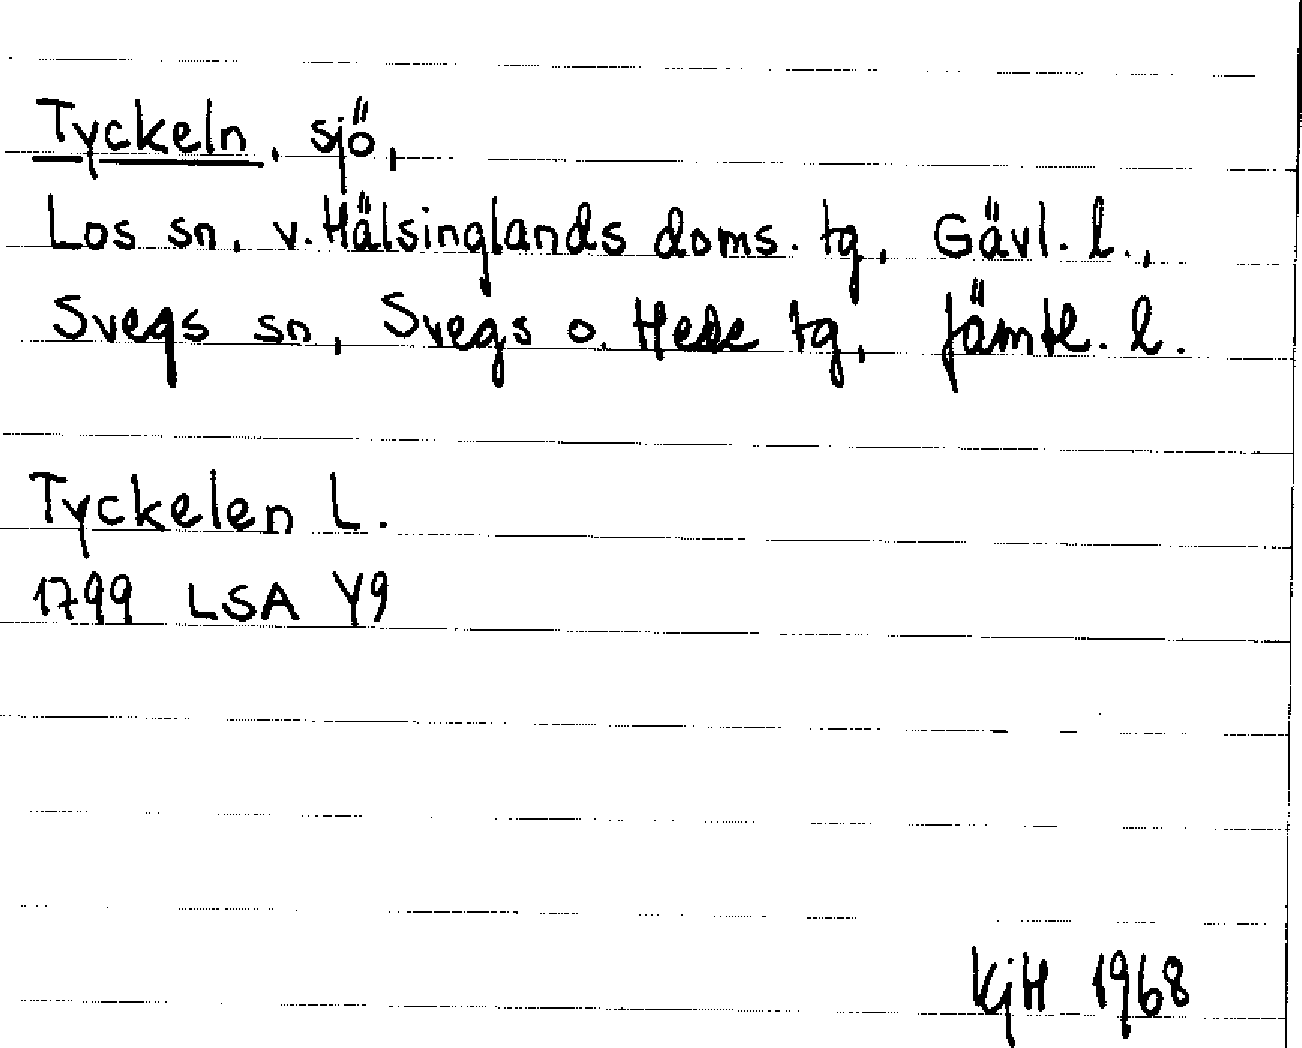 Tyckeln, sjö,
Los sn, v. Hälsinglands doms. tg, Gävl. l.,
Svegs sn, Svegs o. Hede tg, Jämtl. l.
Tyckelen L.
1799 LSA Y9
KjH 1968